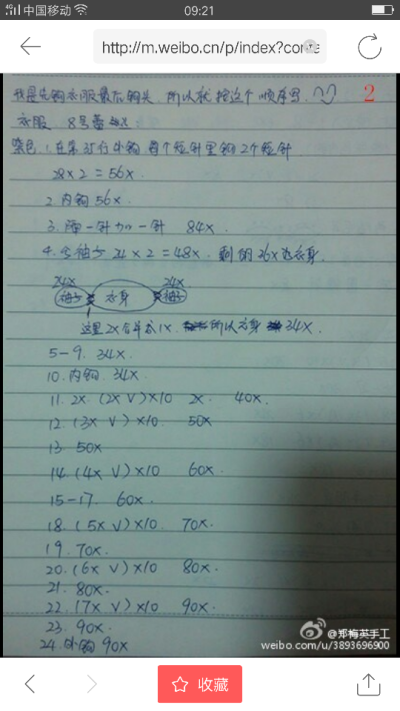 4G 中国移动 09:21
http://m.weibo.cn/p/index?conta
2
我是先钩衣服最后钩头,所以就按这个顺序写.
衣服 8号
1.在第35行外钩 每个短针里钩2个短针
28×2=56X.
2.内钩56X.
3.隔一针加一针 84X.
4.分袖子 24×2=48X. 剩的36X为衣身.
24X 24X
袖子 衣身 袖子
这里2X合并成1X. 所以衣身 34X.
5-9. 34X.
10.内钩. 34X.
11. 2X. (2X V)×10 2X. 40X.
12. (3X V)×10 50X
13. 50X
14. (4X V)×10 60X.
15-17. 60X.
18. (5X V)×10. 70X.
19. 70X.
20. (6X V)×10 80X.
21. 80X.
22. (7X V)×10 90X.
23. 90X.
24. 外钩 90X
@郑梅英手工
weibo.com/u/3893696900
收藏